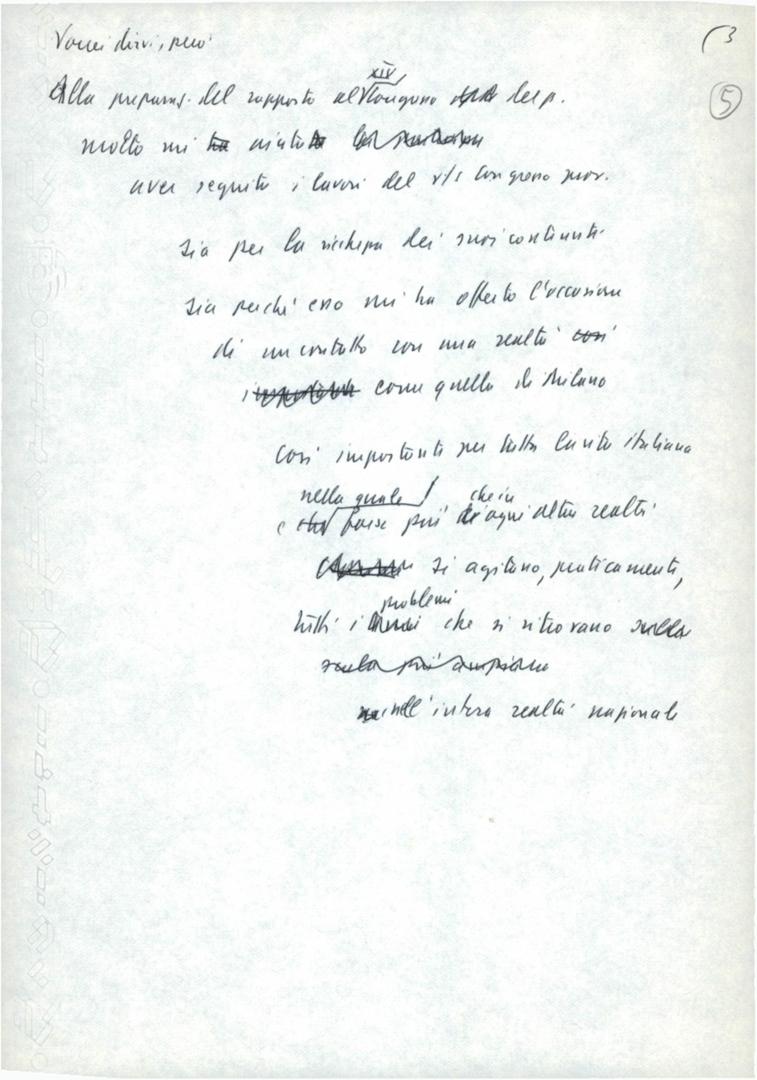 Vorrei dirvi, però
3
5
XIV
Alla preparaz. del rapporto al Congresso del p.
molto mi ha aiutato
aver seguito i lavori del v/s Congresso prov.
sia per la ricchezza dei suoi contenuti
sia perché esso mi ha offerto l'occasione
di un contatto con una realtà così
come quella di Milano
così importante per tutta la vita italiana
nella quale che in
e che forse più di ogni altra realtà
si agitano, praticamente,
problemi
tutti i che si ritrovano sulla
scala più ampia
nell'intera realtà nazionale